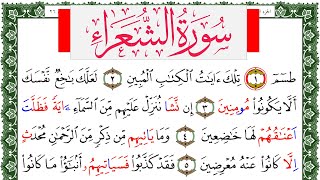 سُورَةُ الشُّعَرَاء
طسٓمٓ ١ تِلْكَ ءَايَٰتُ الْكِتَٰبِ الْمُبِينِ ٢ لَعَلَّكَ بَٰخِعٌ نَّفْسَكَ
أَلَّا يَكُونُوا مُومِنِينَ ٣ إِن نَّشَا نُنَزِّلْ عَلَيْهِم مِّنَ السَّمَآءِ ايَةً فَظَلَّتْ
أَعْنَٰقُهُمْ لَهَا خَٰضِعِينَ ٤ وَمَا يَاتِيهِم مِّن ذِكْرٍ مِّنَ الرَّحْمَٰنِ مُحْدَثٍ
إِلَّا كَانُوا عَنْهُ مُعْرِضِينَ ٥ فَقَدْ كَذَّبُوا فَسَيَاتِيهِمُ أَنۢبَٰٓؤُا مَا كَانُوا